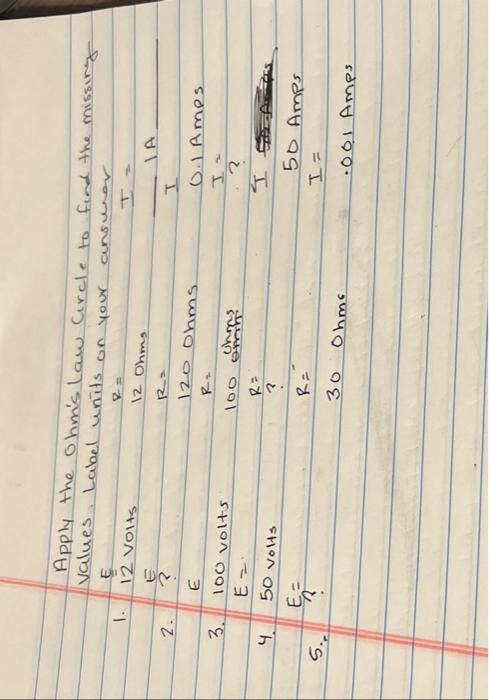 Apply the Ohm's Law Circle to find the missing
values. Label units on your answer
E R= I =
1. 12 Volts 12 Ohms 1A
E R= I
2. ? 120 Ohms 0.1 Amps
E R= I =
3. 100 volts 100 ohms ?
E = R= I
4. 50 volts ? 50 Amps
E= R= I =
5. ? 30 Ohms .001 Amps